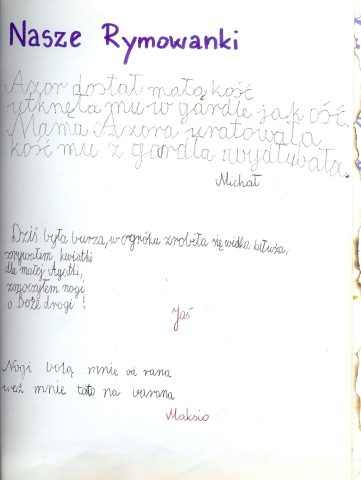 Nasze Rymowanki
Azor dostał małą kość
utknęła mu w gardle jak ość.
Mama Azora uratowała
kość mu z gardła wydłubała.
Michał
Dziś była burza, w ogródku zrobiła się wielka kałuża,
zrywałem kwiatki
dla małej Agatki,
zmoczyłem nogi
o Boże drogi!
Jaś
Nogi bolą mnie od rana
weź mnie tato na barana
Maksio